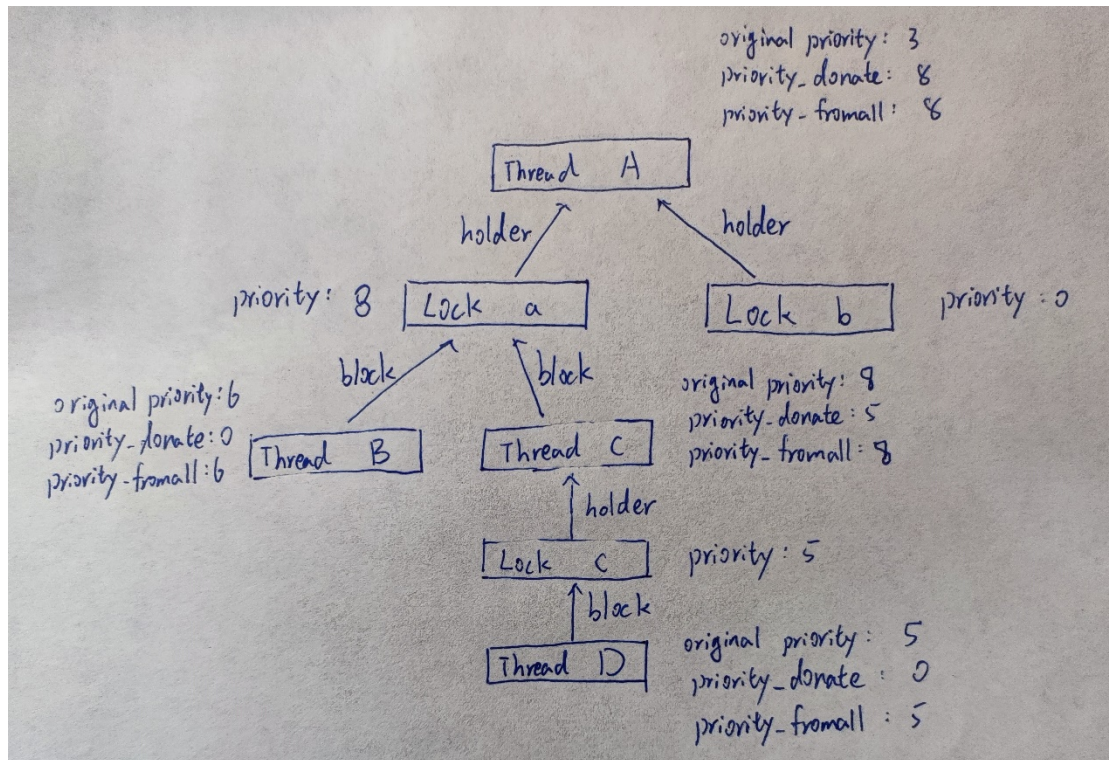 original priority: 3
priority_donate: 8
priority-fromall: 8
Thread A
holder
holder
priority: 8
Lock a
Lock b
priority: 0
block
block
original priority: 6
priority_donate: 0
priority-fromall: 6
Thread B
Thread C
original priority: 8
priority_donate: 5
priority-fromall: 8
holder
Lock c
priority: 5
block
Thread D
original priority: 5
priority_donate: 0
priority-fromall: 5